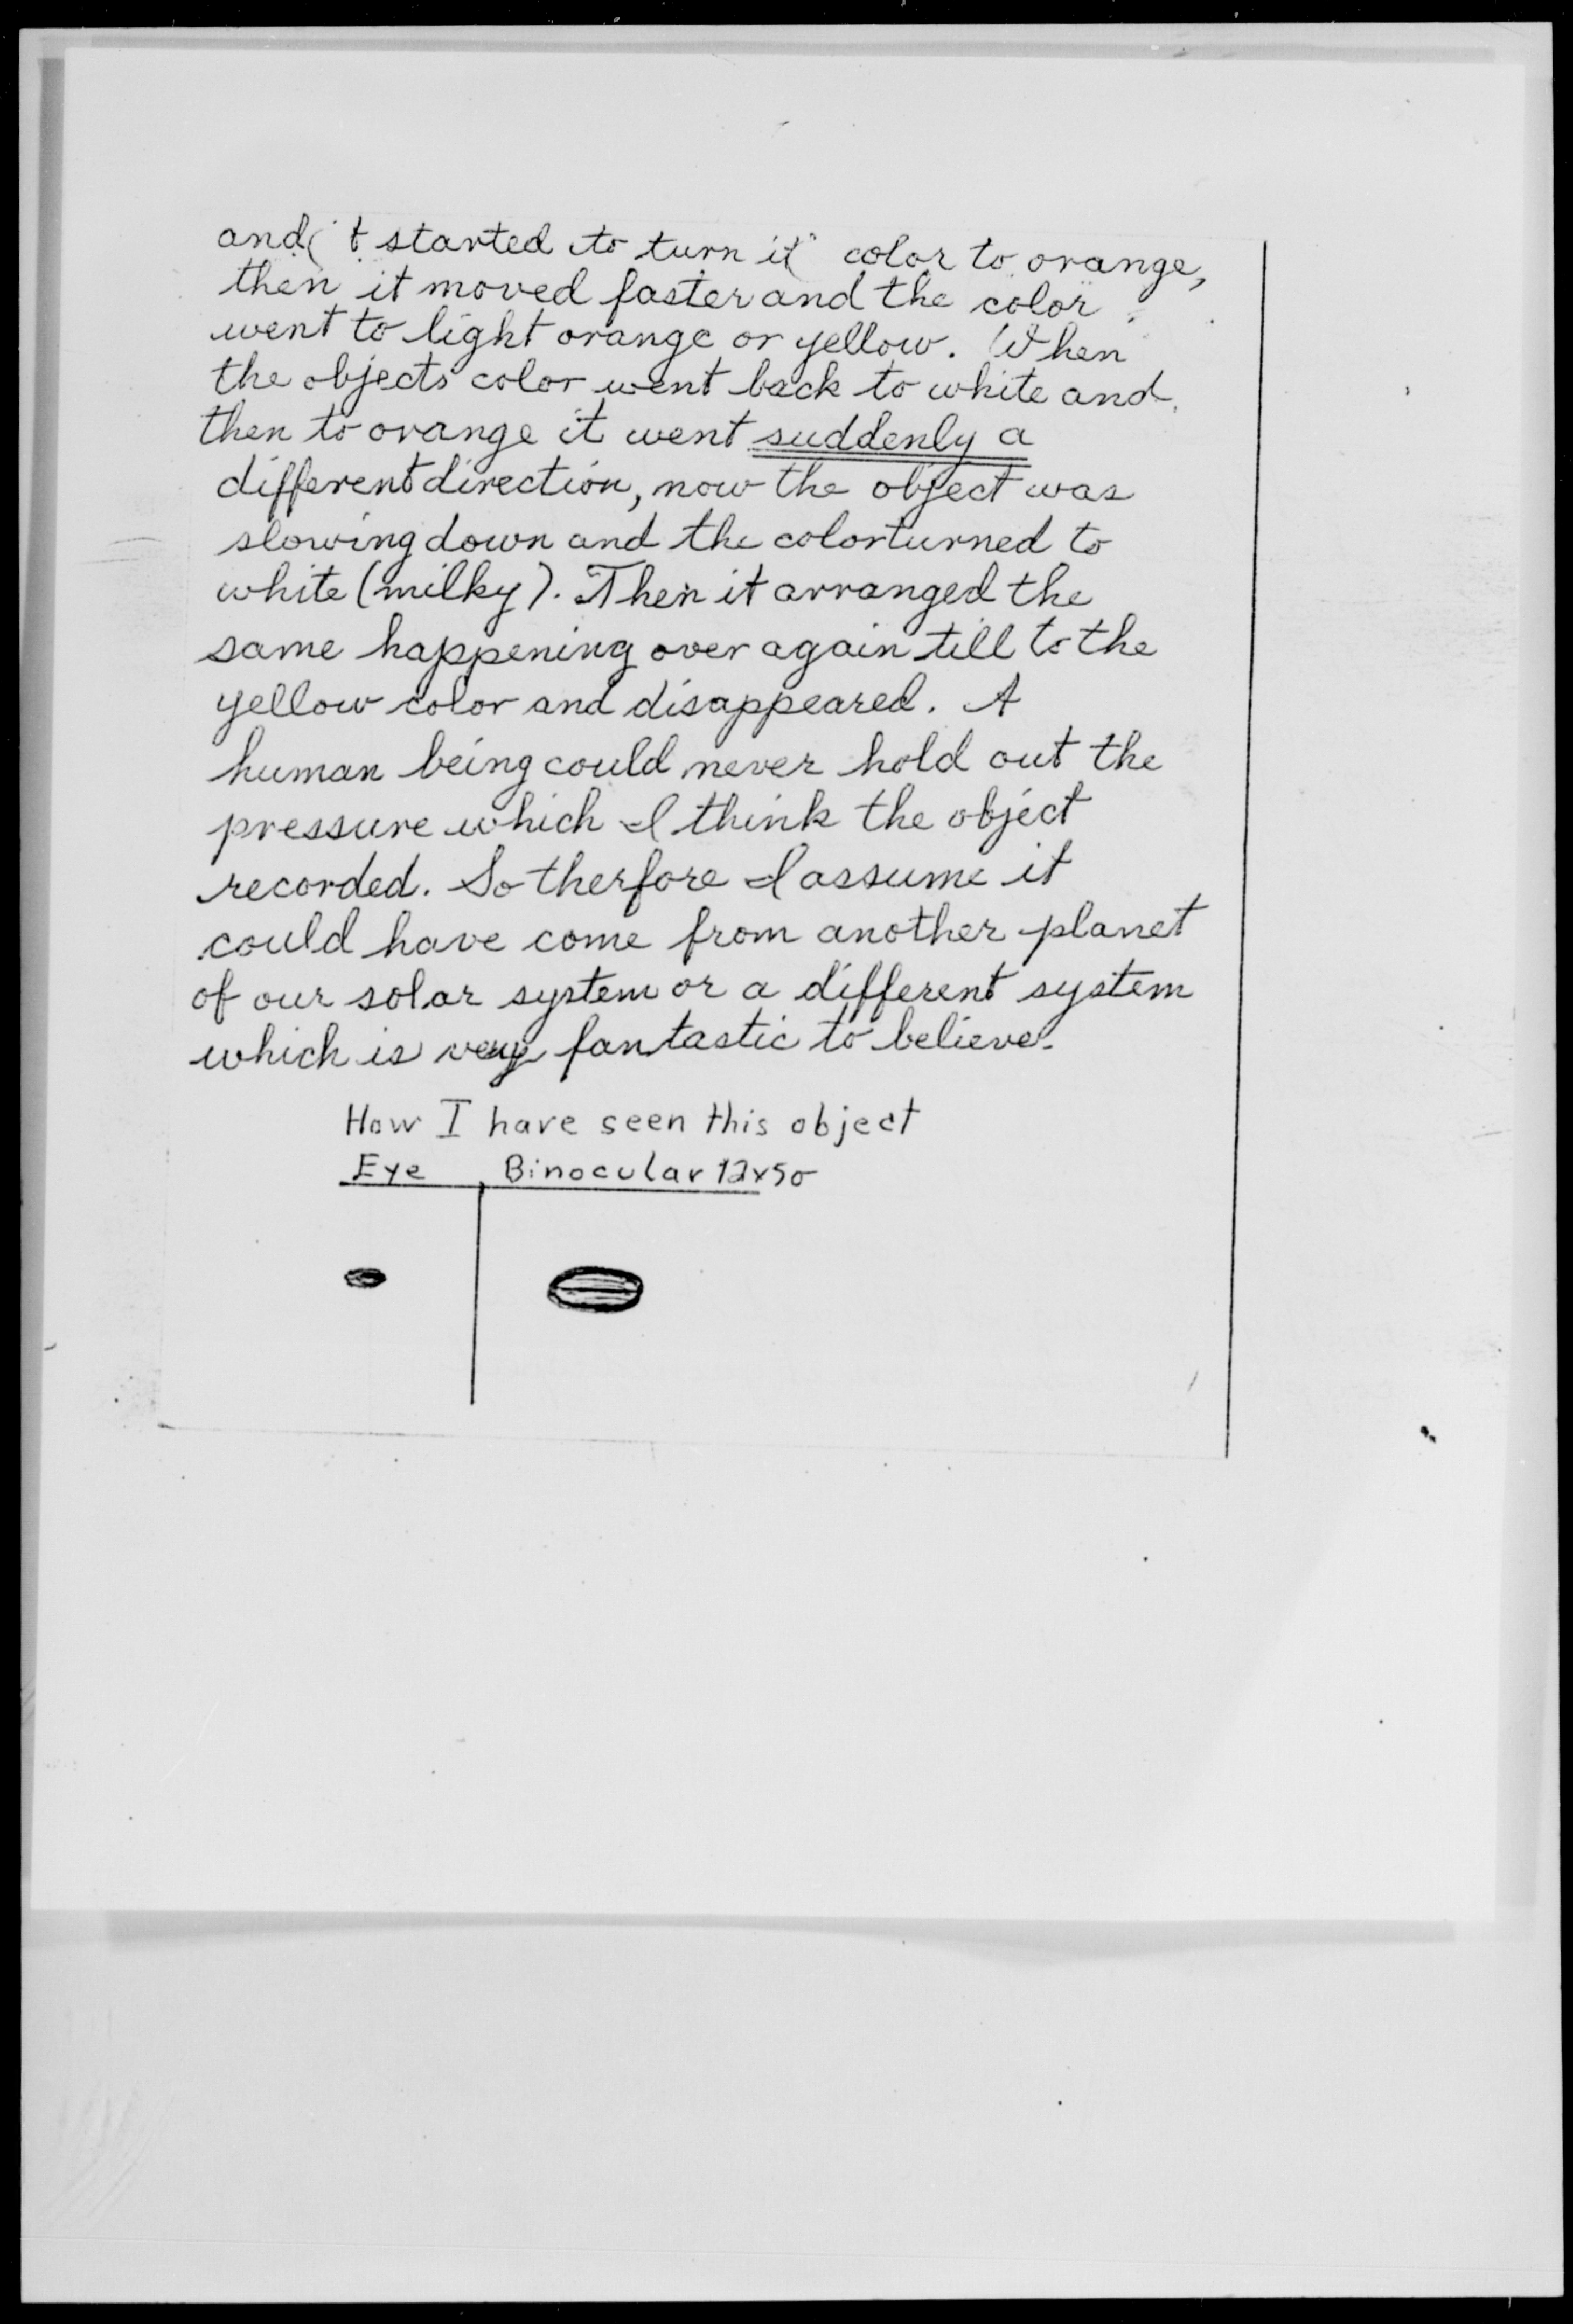 and it started to turn it color to orange,
then it moved faster and the color
went to light orange or yellow. When
the objects color went back to white and
then to orange it went suddenly a
different direction, now the object was
slowing down and the color turned to
white (milky). Then it arranged the
same happening over again till to the
yellow color and disappeared. A
human being could never hold out the
pressure which I think the object
recorded. So therfore I assume it
could have come from another planet
of our solar system or a different system
which is very fantastic to believe.
How I have seen this object
Eye Binocular 12x50